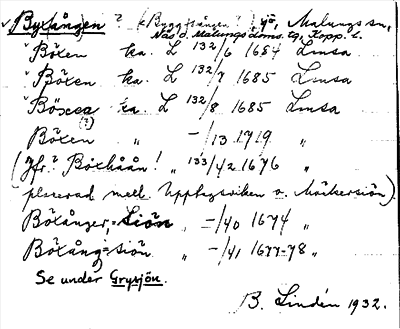 v Byxången ? (< Byggesången?) sjö, Malungs sn,
Nås o. Malungs doms. tg, Kopp. l.
v Böxen ka. L 132/6 1654 Limsa.
v Böxen ka. L 132/7 1685 Limsa
v Böxea ka. L 132/8 1685 Limsa
Böxen (?) " -/13 1719 "
(Jfr.? Böxhåån! " 133/42 1676 "
placerad mell. Upplagsviken o. Mörkersjön).
Böxånger,=Siön " -/40 1674 "
Böxång=siön " -/41 1677-78 "
Se under Grysjön.
B. Lindén 1932.